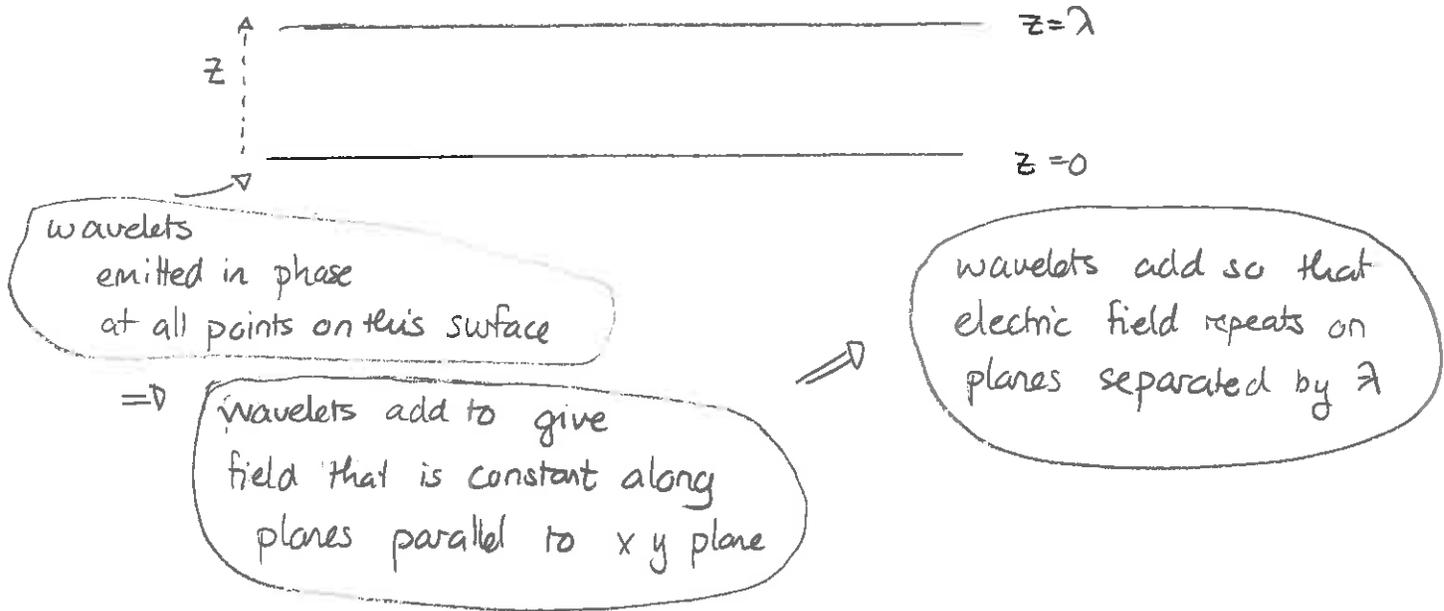 z=λ
z
z=0
wavelets
emitted in phase
at all points on this surface
⇒
wavelets add to give
field that is constant along
planes parallel to x y plane
⇒
wavelets add so that
electric field repeats on
planes separated by λ